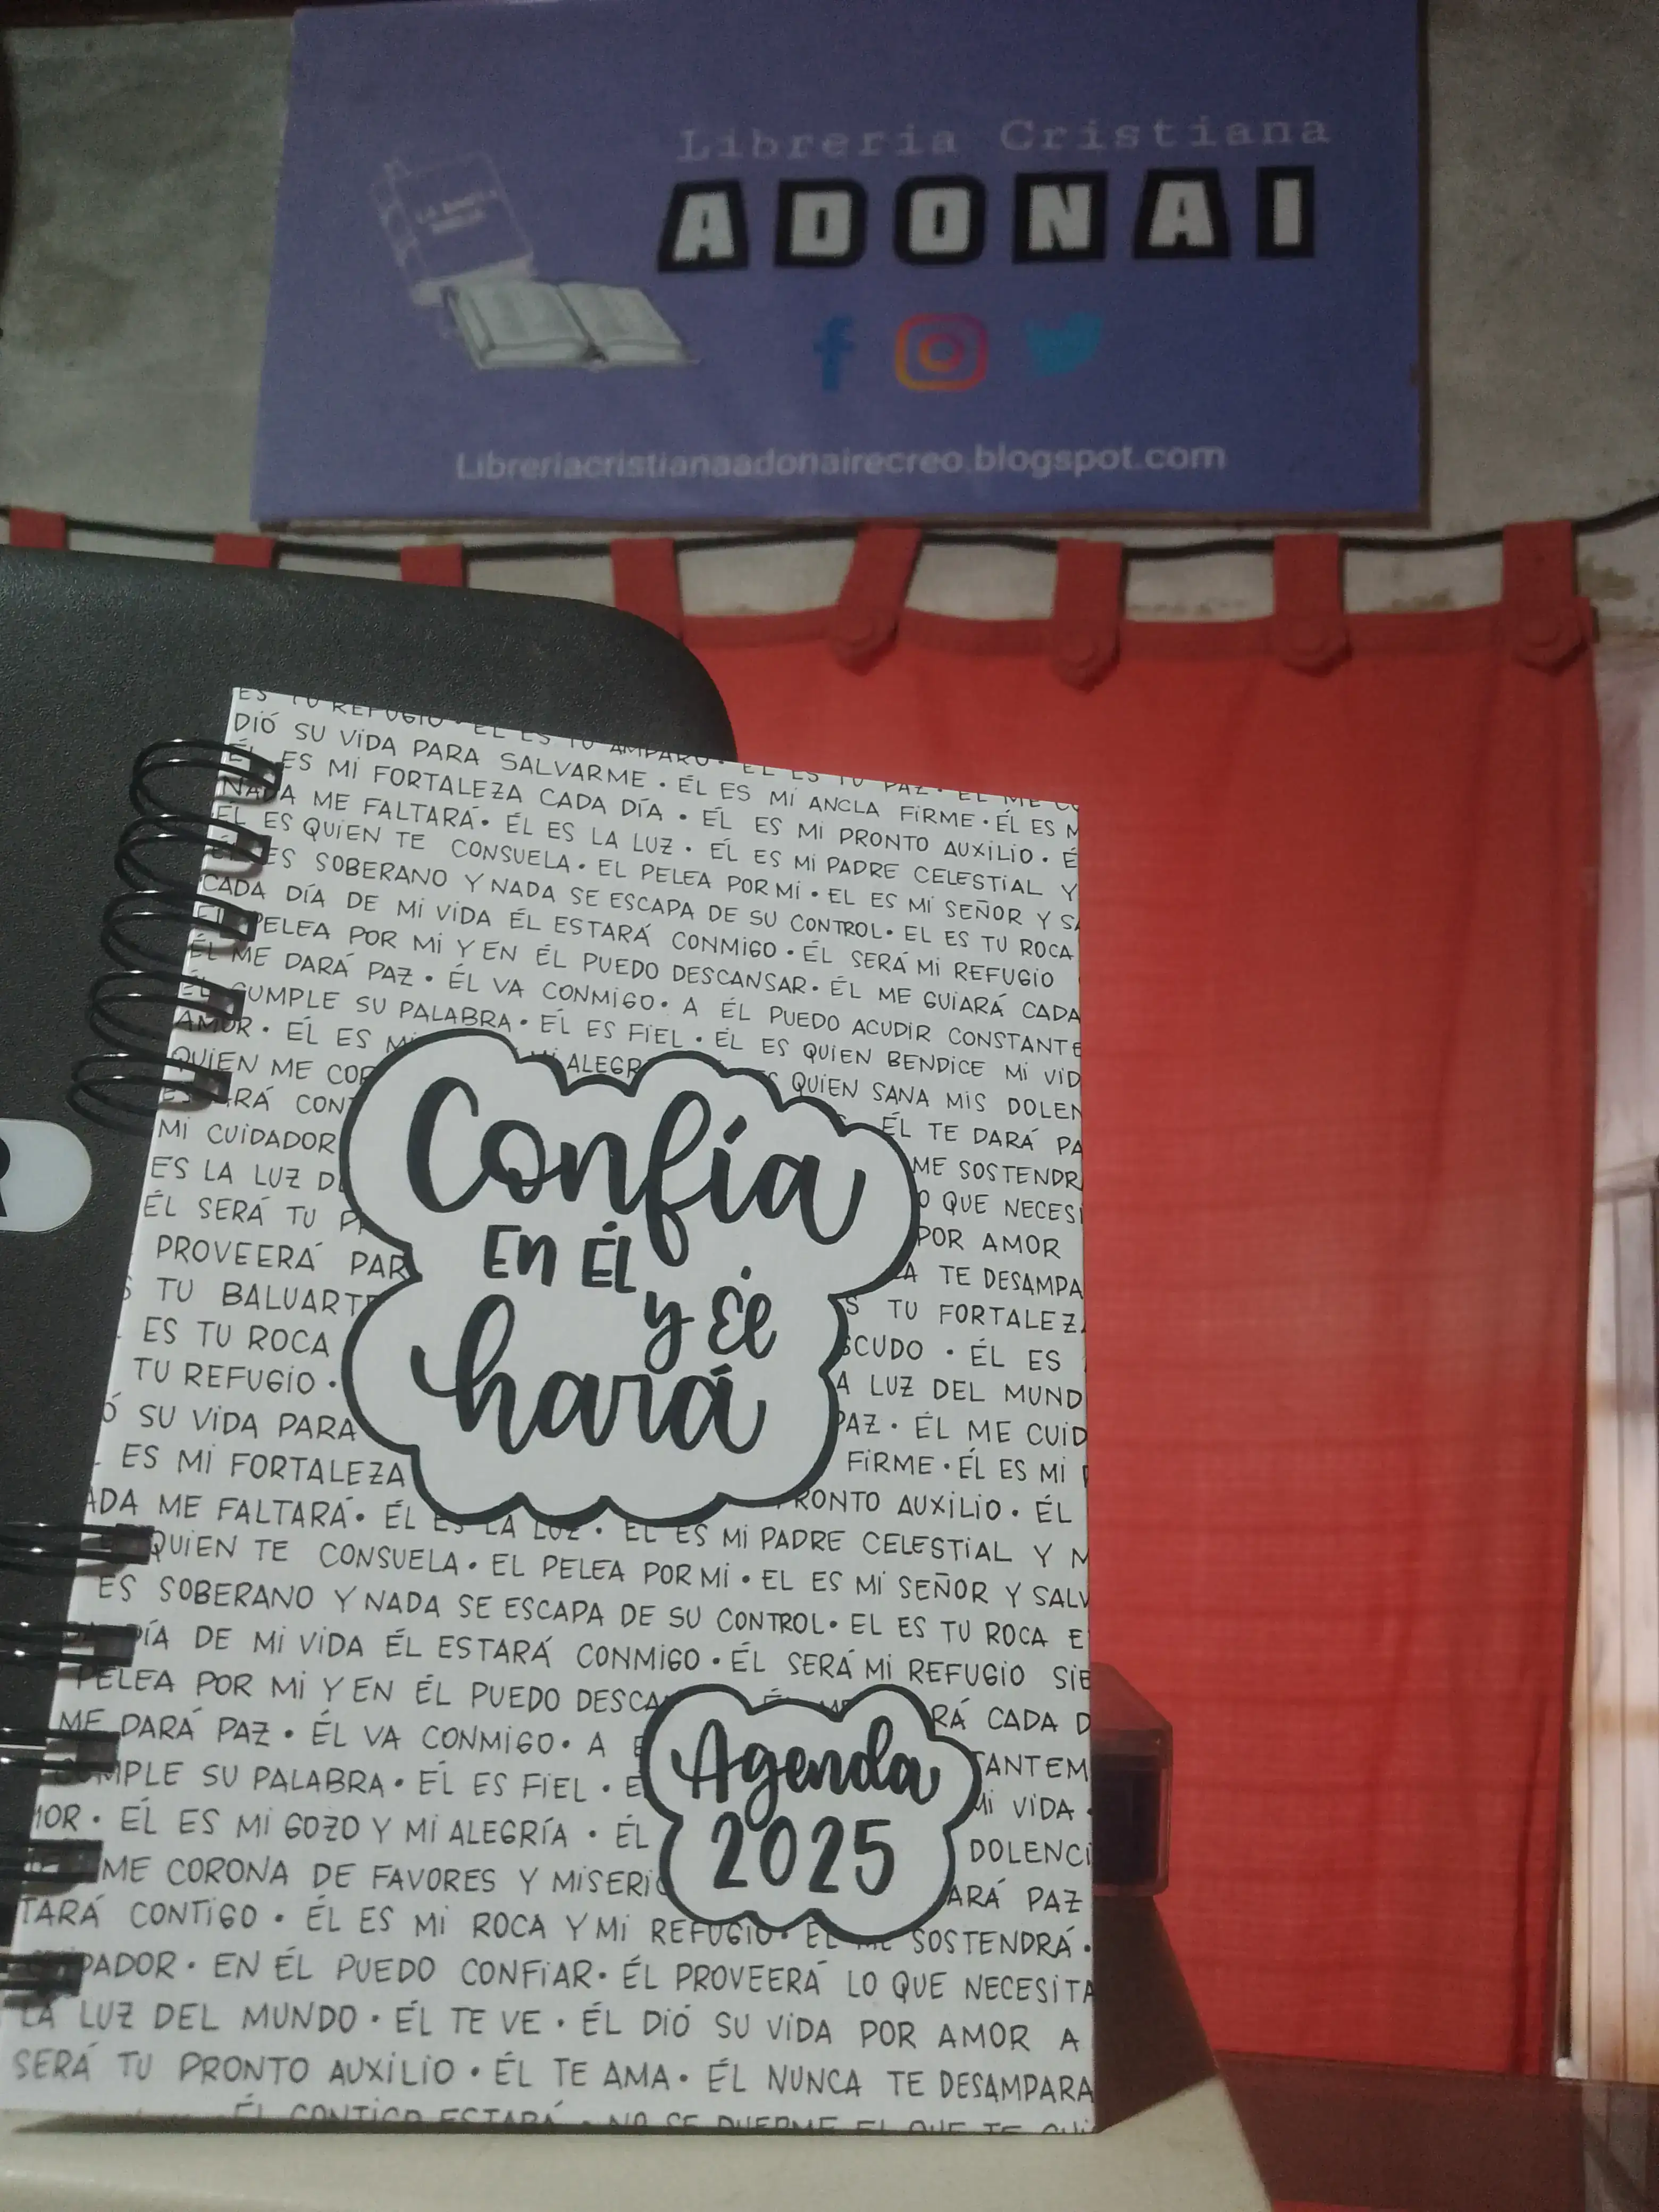 Libreria Cristiana
ADONAI
Libreriacristianaadonairecreo.blogspot.com
ES TU REFUGIO · ÉL ES TU AMPARO · ÉL ES TU PAZ · ÉL ME
DIÓ SU VIDA PARA SALVARME · ÉL ES MI ANCLA FIRME · ÉL ES
ÉL ES MI FORTALEZA CADA DÍA · ÉL ES MI PRONTO AUXILIO ·
NADA ME FALTARÁ · ÉL ES LA LUZ · ÉL ES MI PADRE CELESTIAL Y
ÉL ES QUIEN TE CONSUELA · EL PELEA POR MI · EL ES MI SEÑOR Y
ÉL ES SOBERANO Y NADA SE ESCAPA DE SU CONTROL · EL ES TU ROCA
CADA DÍA DE MI VIDA ÉL ESTARÁ CONMIGO · ÉL SERÁ MI REFUGIO
PELEA POR MI Y EN ÉL PUEDO DESCANSAR · ÉL ME GUIARÁ CADA
ÉL ME DARÁ PAZ · ÉL VA CONMIGO · A ÉL PUEDO ACUDIR CONSTANTE
CUMPLE SU PALABRA · ÉL ES FIEL · ÉL ES QUIEN BENDICE MI VID
AMOR · ÉL ES MI ALEGR QUIEN SANA MIS DOLEN
QUIEN ME COR ÉL TE DARÁ PA
RÁ CONT ME SOSTENDR
MI CUIDADOR O QUE NECESI
ES LA LUZ D POR AMOR
ÉL SERÁ TU P A TE DESAMPA
PROVEERÁ PAR S TU FORTALEZ
TU BALUARTE SCUDO · ÉL ES
ES TU ROCA A LUZ DEL MUND
TU REFUGIO · PAZ · ÉL ME CUID
Ó SU VIDA PARA FIRME · ÉL ES MI
ES MI FORTALEZA RONTO AUXILIO · ÉL
Confía
EN ÉL
y Él
hará
ADA ME FALTARÁ · ÉL ES LA LUZ · ÉL ES MI PADRE CELESTIAL Y
QUIEN TE CONSUELA · EL PELEA POR MI · EL ES MI SEÑOR Y SALV
ES SOBERANO Y NADA SE ESCAPA DE SU CONTROL · EL ES TU ROCA E
DÍA DE MI VIDA ÉL ESTARÁ CONMIGO · ÉL SERÁ MI REFUGIO SIE
PELEA POR MI Y EN ÉL PUEDO DESCA RÁ CADA D
ME DARÁ PAZ · ÉL VA CONMIGO · A TANTEM
MPLE SU PALABRA · ÉL ES FIEL · MI VIDA ·
MOR · ÉL ES MI GOZO Y MI ALEGRÍA · ÉL DOLENCI
ME CORONA DE FAVORES Y MISERIC ARÁ PAZ
Agenda
2025
TARÁ CONTIGO · ÉL ES MI ROCA Y MI REFUGIO · ÉL ME SOSTENDRÁ ·
DADOR · EN ÉL PUEDO CONFIAR · ÉL PROVEERÁ LO QUE NECESITA
LA LUZ DEL MUNDO · ÉL TE VE · ÉL DIÓ SU VIDA POR AMOR A
SERÁ TU PRONTO AUXILIO · ÉL TE AMA · ÉL NUNCA TE DESAMPARA
ÉL CONTIGO ESTARÁ · NO SE DUERME EL QUE TE